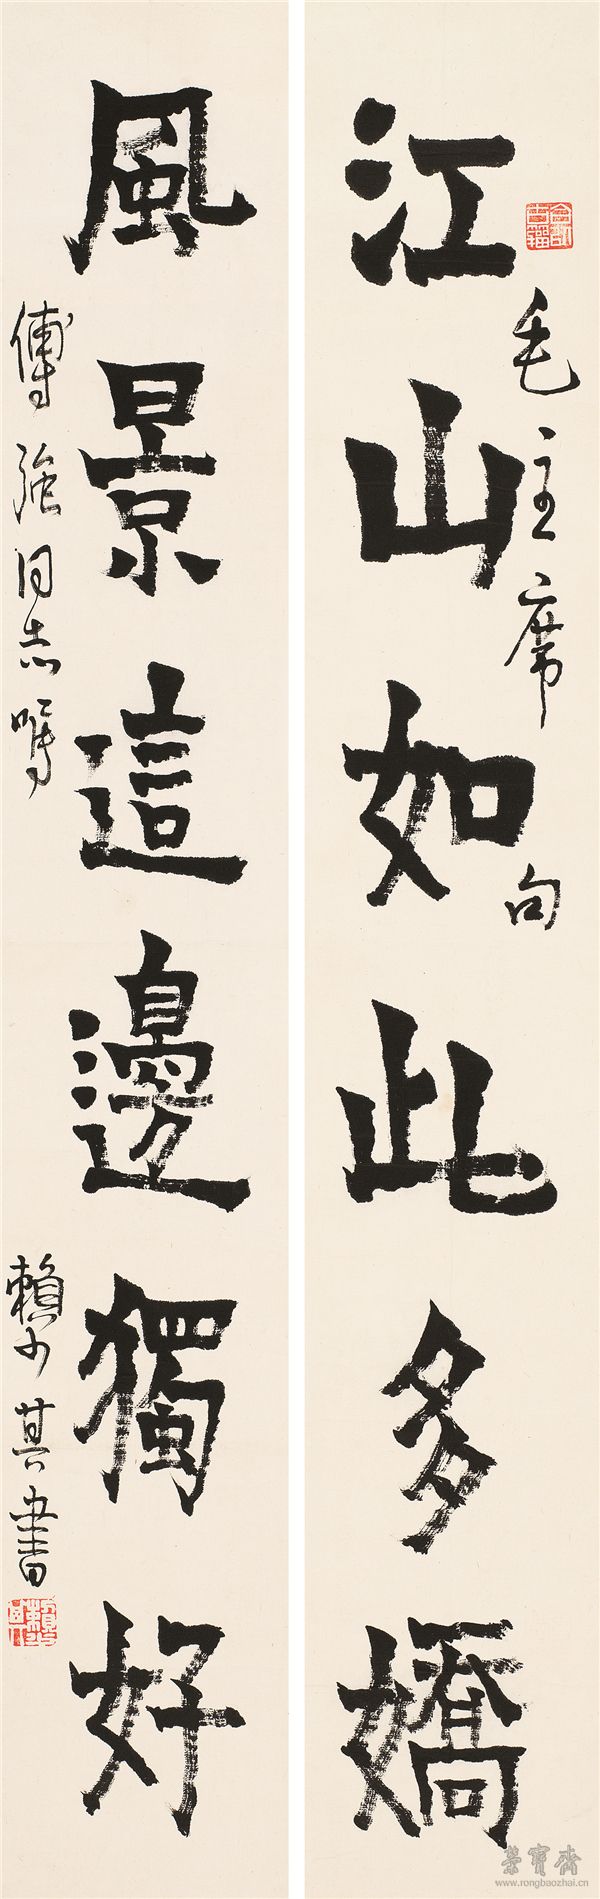 江山如此多嬌
毛主席句
風景這邊獨好
傅強同志囑
賴少其書
榮寶齋
www.rongbaozhai.cn